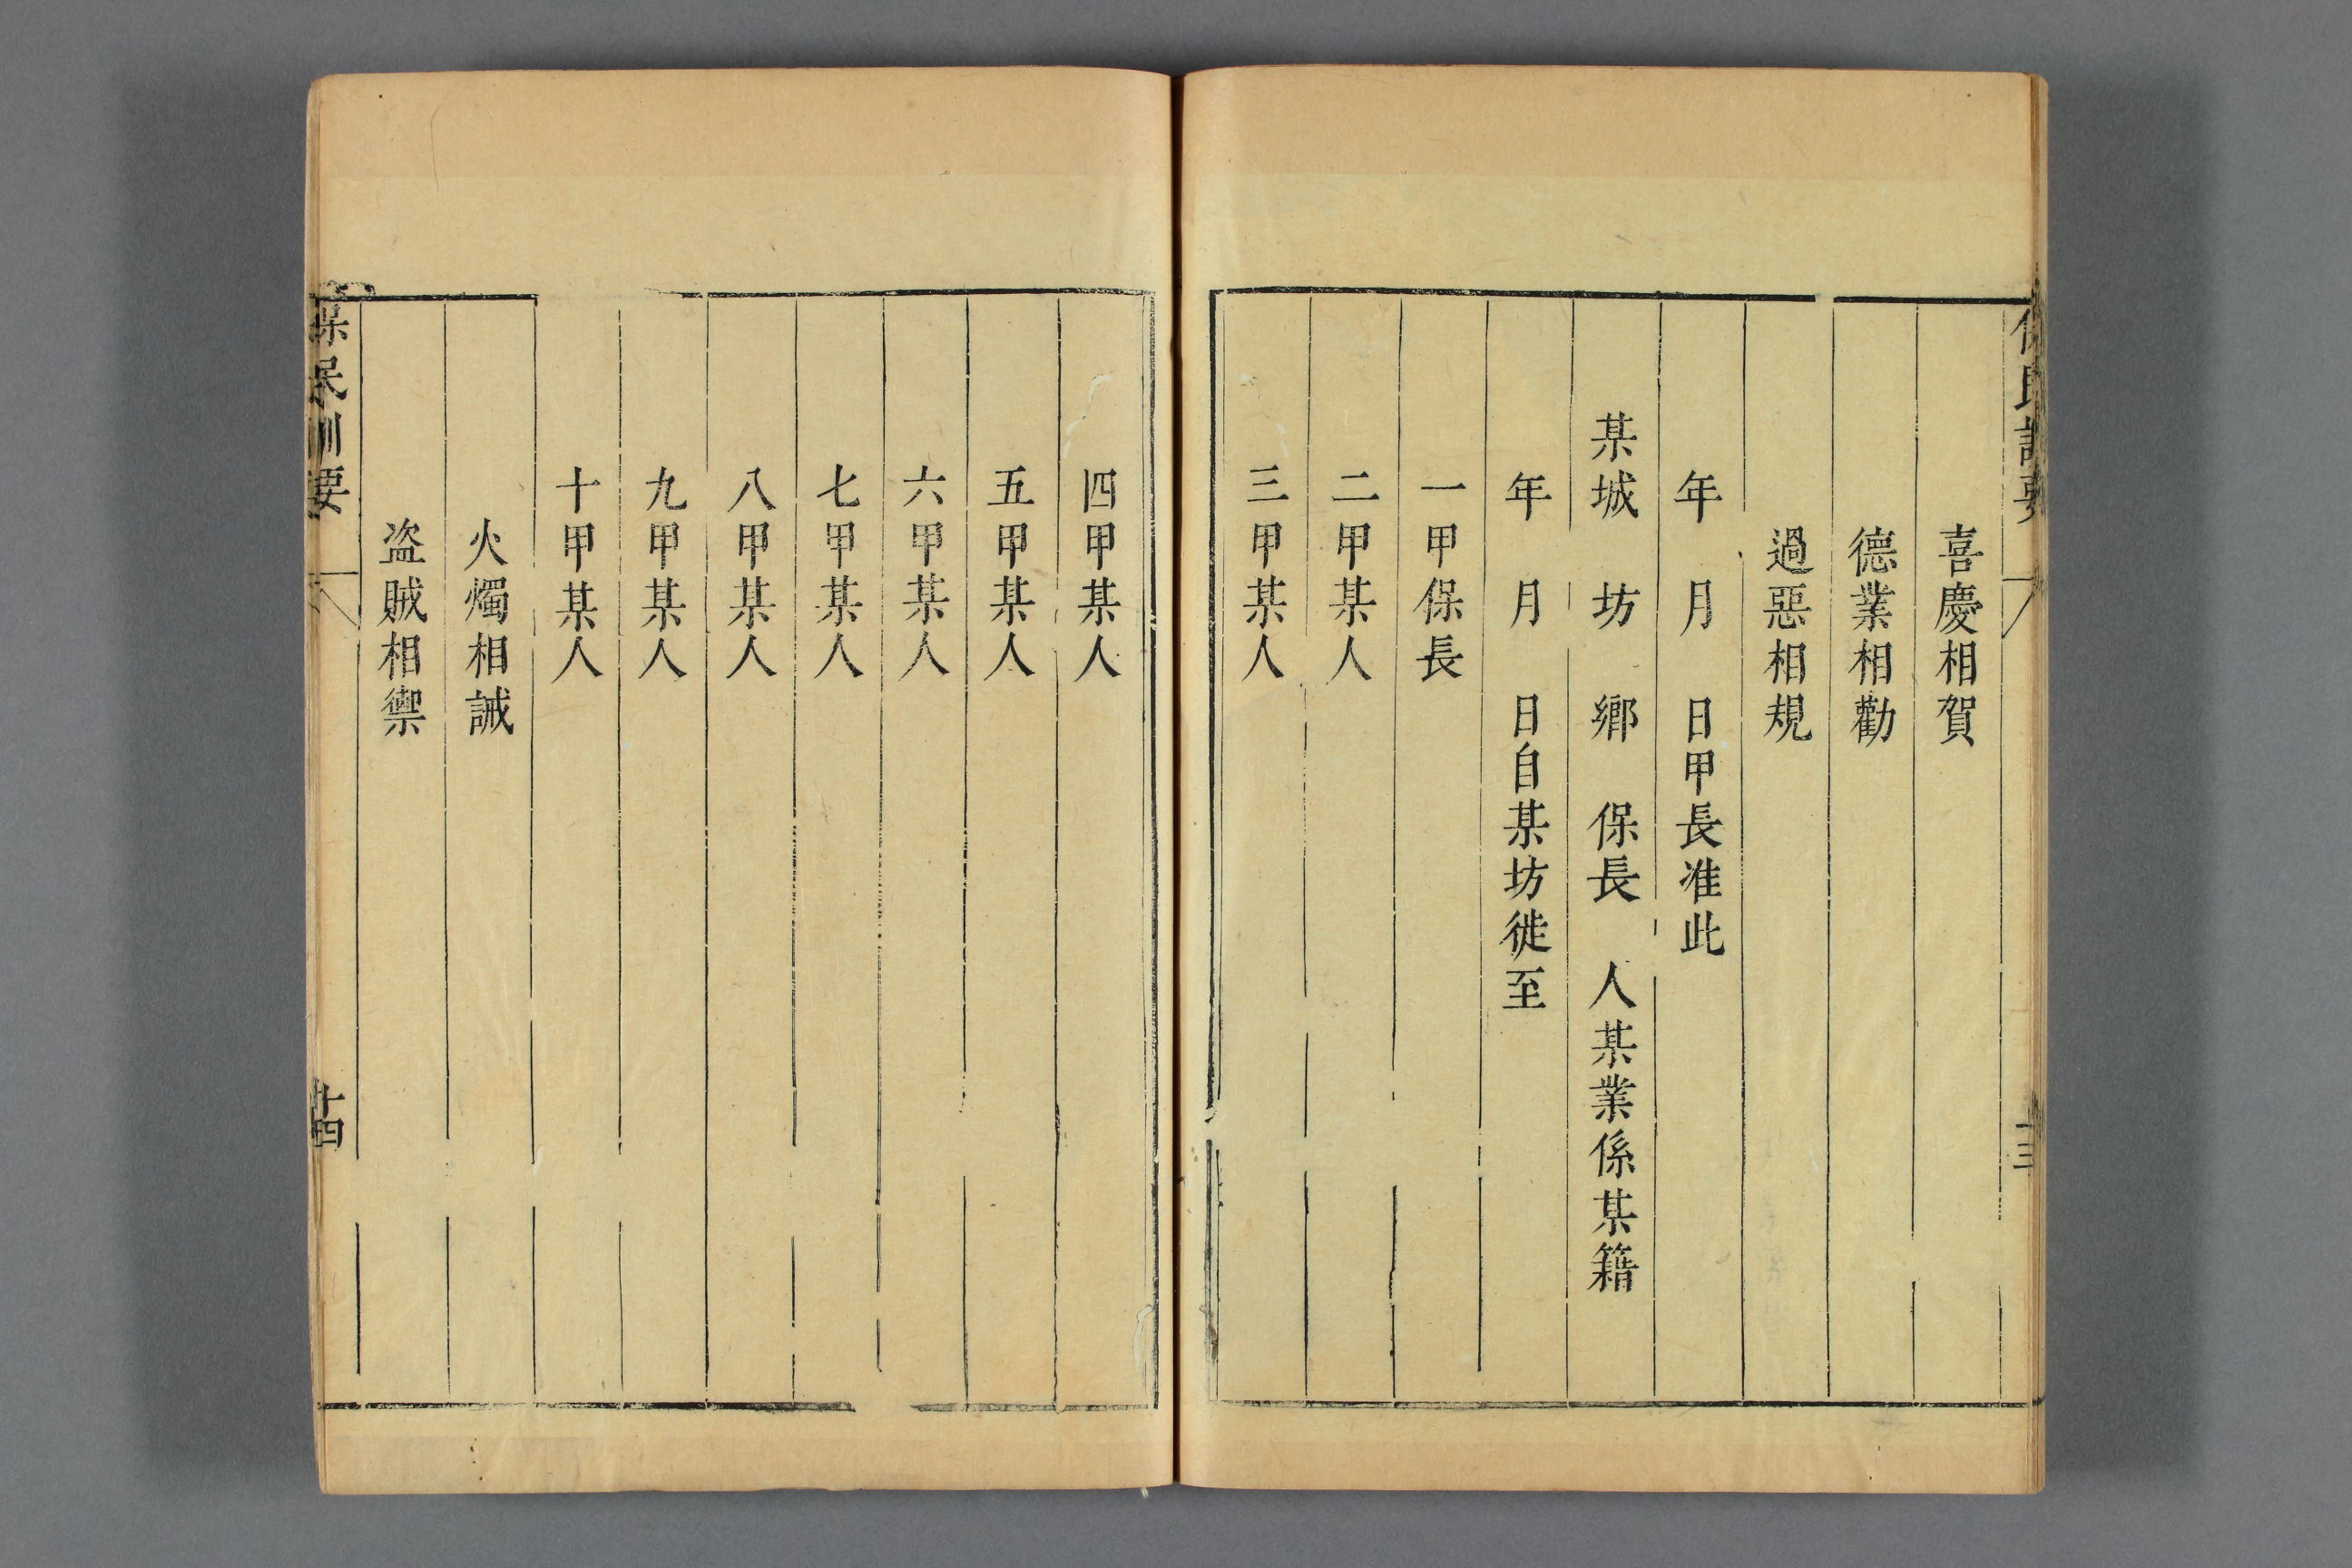 喜慶相賀
德業相勸
過惡相規
年 月 日甲長准此
某城 坊 鄉 保長 人某業係某籍
年 月 日自某坊徙至
一甲保長
二甲某人
三甲某人
四甲某人
五甲某人
六甲某人
七甲某人
八甲某人
九甲某人
十甲某人
火燭相誡
盗賊相禦
保民訓要
十四